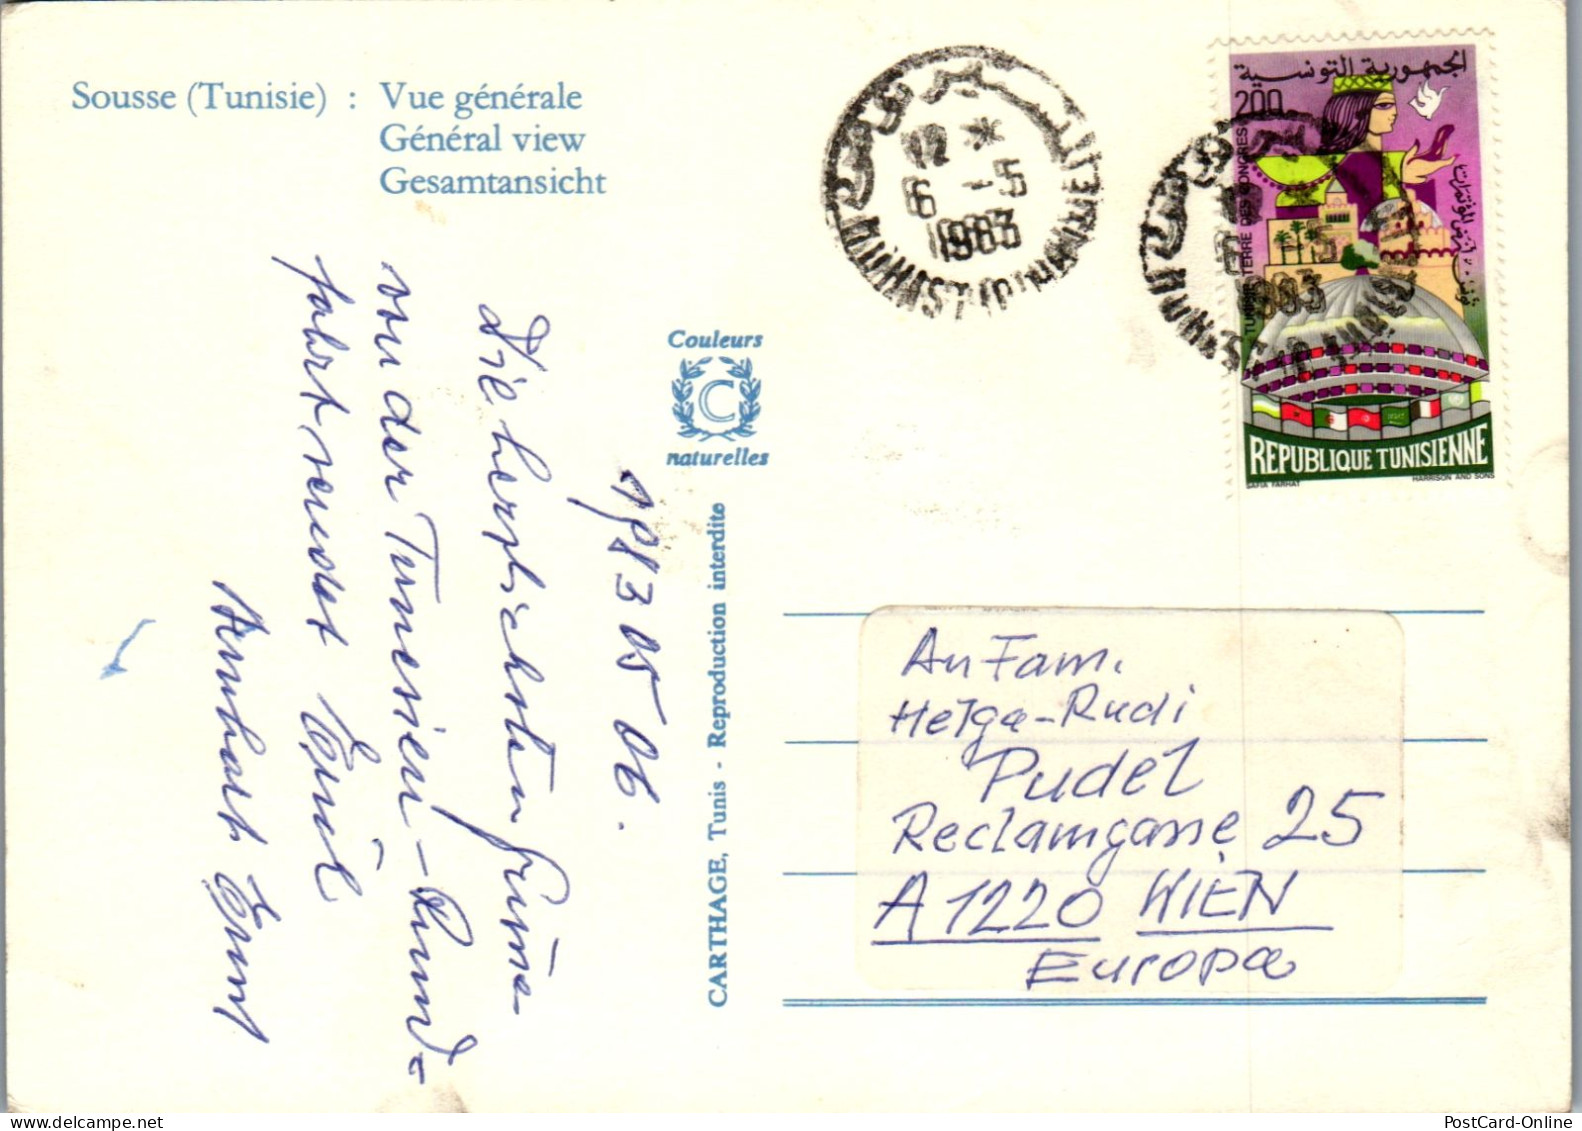 Sousse (Tunisie) : Vue générale
Général view
Gesamtansicht
1983 05 06.
Die herzlichsten Grüsse
von der Tunesien-Rund=
fahrt sendet Emil
Couleurs
C
naturelles
CARTHAGE, Tunis - Reproduction interdite
12 *
6 -5
1983
الجمهورية التونسية
200
TUNISIE TERRE DES CONGRES
REPUBLIQUE TUNISIENNE
SAFIA FARHAT
HARRISON AND SONS
An Fam.
Helga-Rudi
Pudel
Reclamgasse 25
A 1220 WIEN
Europa
PostCard-Online